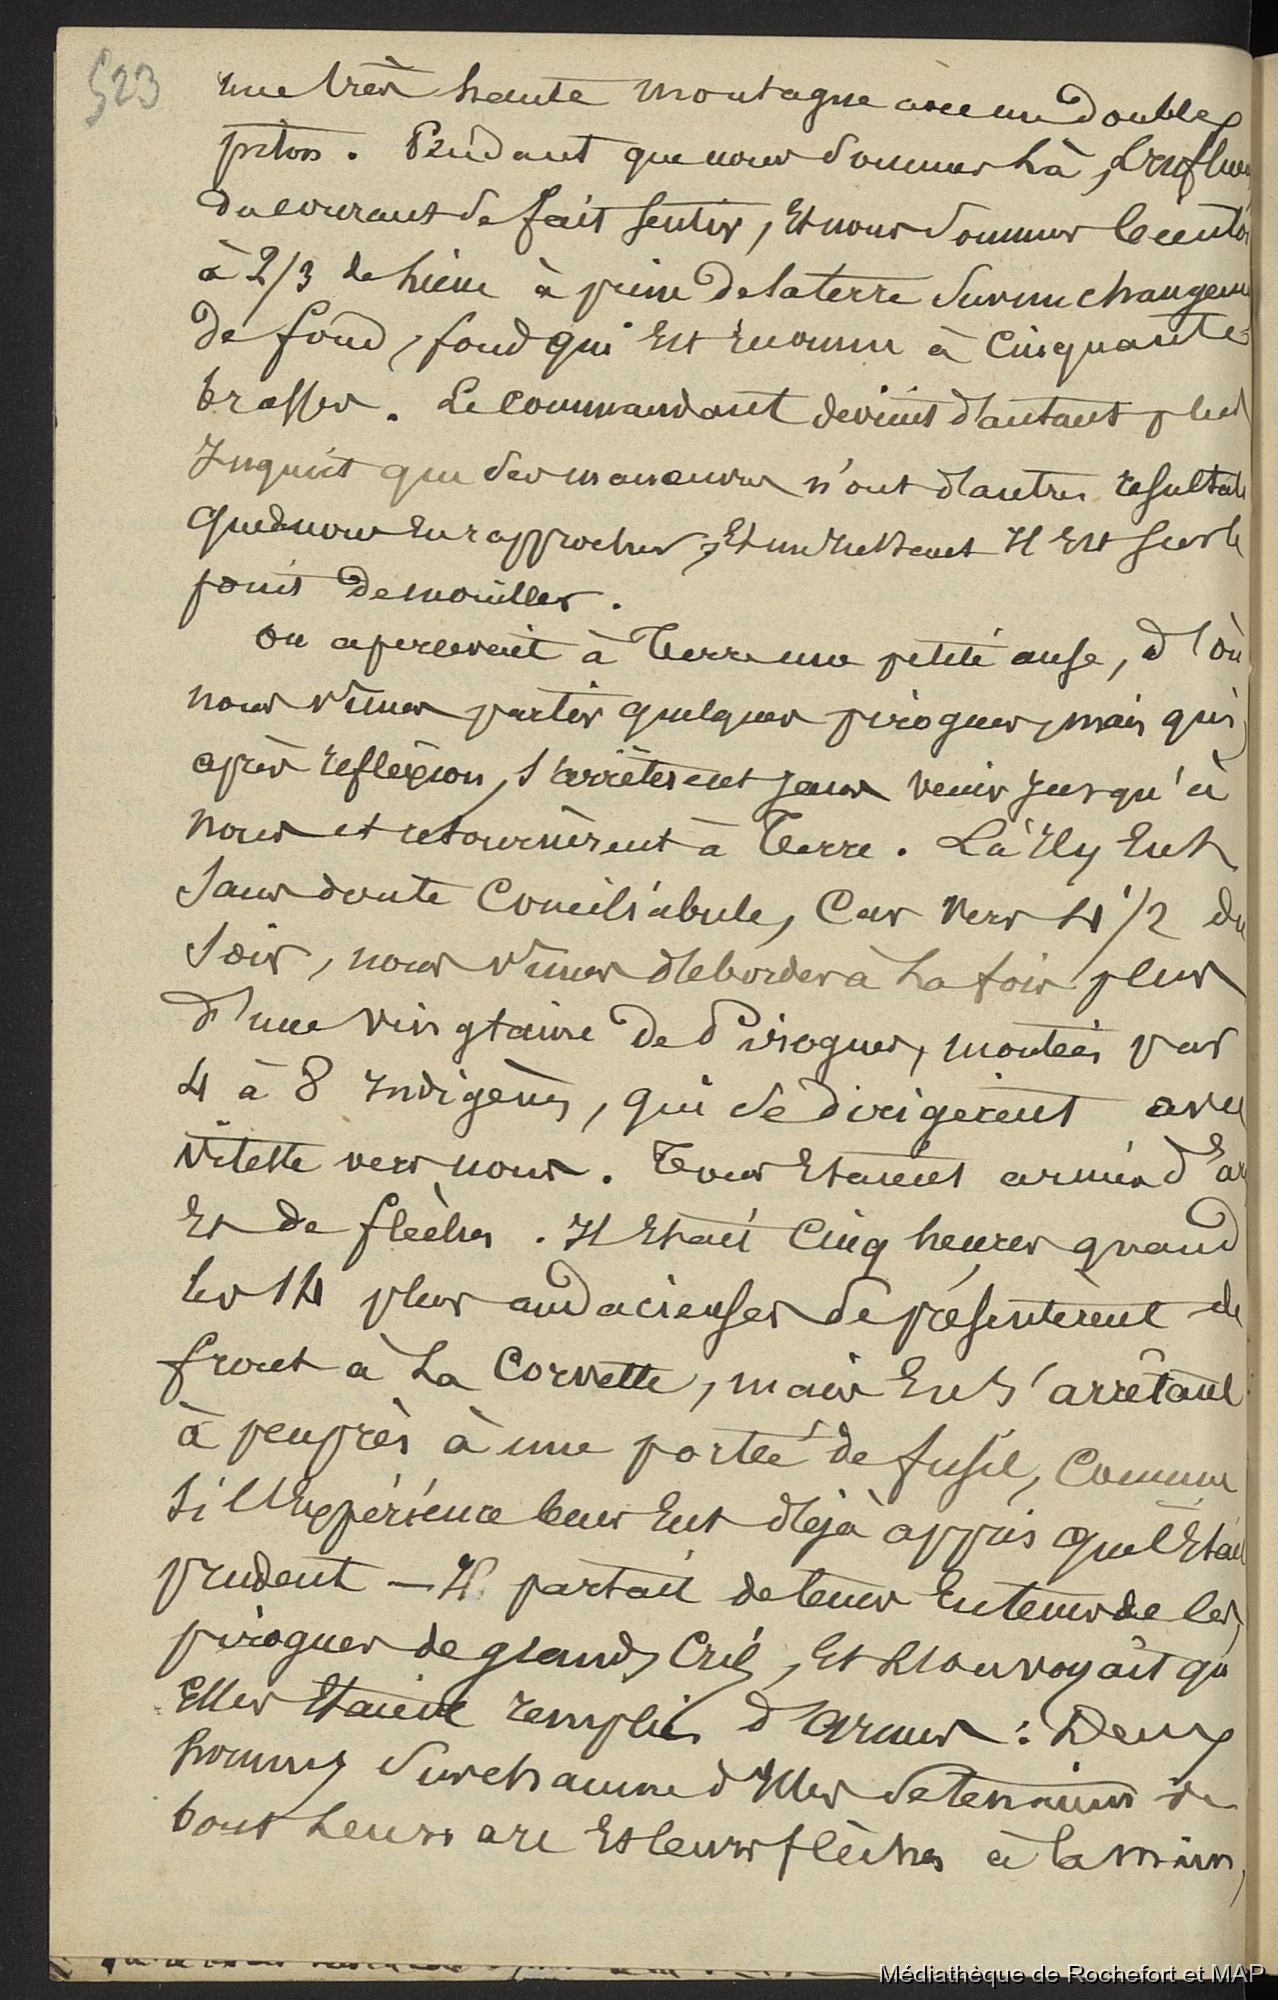 523
une très haute montagne avec un double
piton. Pendant que nous sommes là, l'influen
du courant se fait sentir, Et nous sommes bientôt
à 2/3 de lieue à peine de la terre sur un changem
de fond, fond qui Est reconnu à Cinquante
brasses. Le commandant devient d'autant plus
Inquiet que ses manœuvres n'ont d'autres resultats
que de nous en rapprocher, Et un Instant Il Est sur le
point de mouiller.
on apercevait à Terre une petite anse, d'où
nous vîmes partir quelques pirogues, mais qui,
après réflexion, s'arrêtèrent sans venir jusqu'à
nous et retournèrent à Terre. Là Il y Eut
sans doute Conciliabule, Car vers 4 1/2 du
soir, nous vîmes déborder à la fois plus
d'une vingtaine de Pirogues, montées par
4 à 8 Indigènes, qui se dirigèrent avec
vitesse vers nous. Tous Etaient armés d'ar
Et de flèches. Il Etait Cinq heures quand
les 14 plus audacieuses se présentèrent de
front à la Corvette, mais En s'arrêtant
à peu près à une portée de fusil, Comme
si l'Expérience leur Eut déjà appris qu'il Etait
prudent — Il partait de temps En temps de les
pirogues de grands Cris, Et l'on voyait qu'
Elles Etaient remplies d'armes : Deux
hommes sur chacune d'Elles se tenaient de
bout leurs arc Et leurs flèches à la main,
Médiathèque de Rochefort et MAP